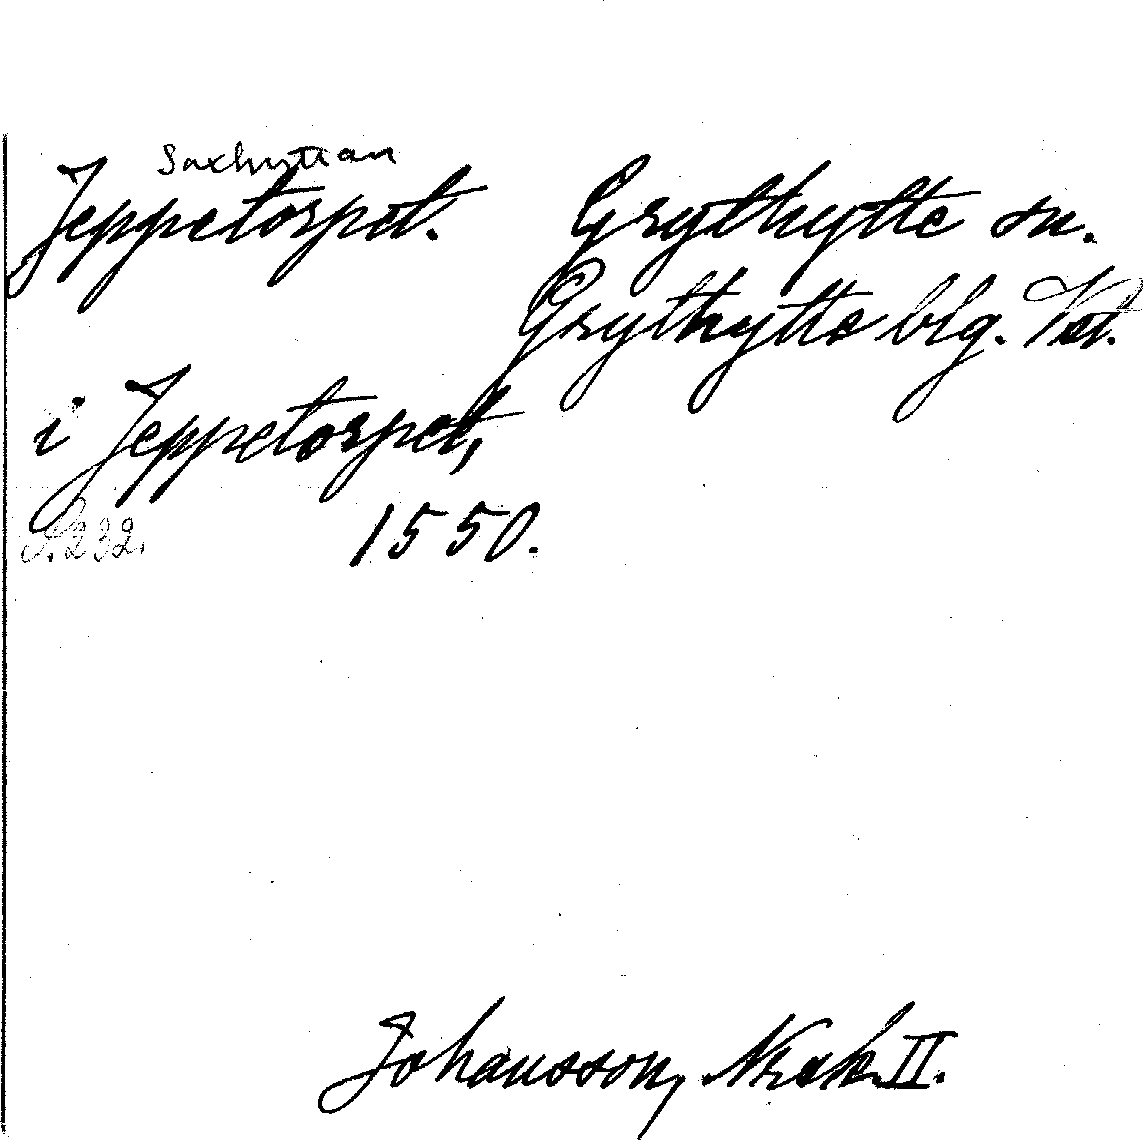 Saxhyttan
Jeppetorpet. Grythytte sn.
Grythytte blg. Vst.
i Jeppetorpet,
S. 232. 1550.
Johansson, Norask. II.